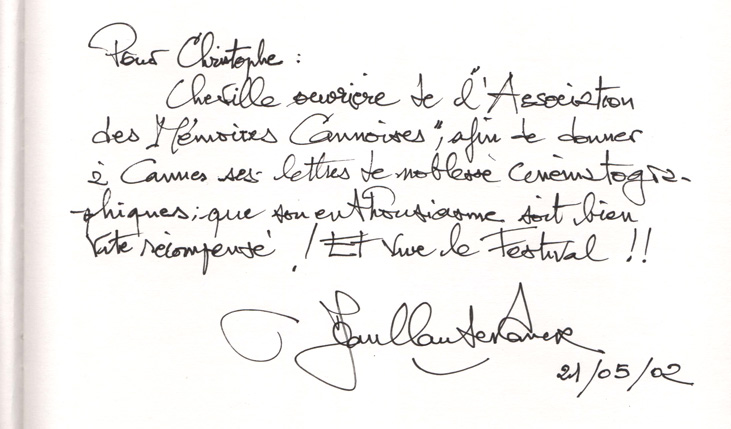 Pour Christophe :
Cheville ouvrière de l'"Association
des Mémoires Cannoises", afin de donner
à Cannes ses lettres de noblesse cinématogra-
-phiques; que son enthousiasme soit bien
vite récompensé ! Et vive le Festival !!
21/05/02